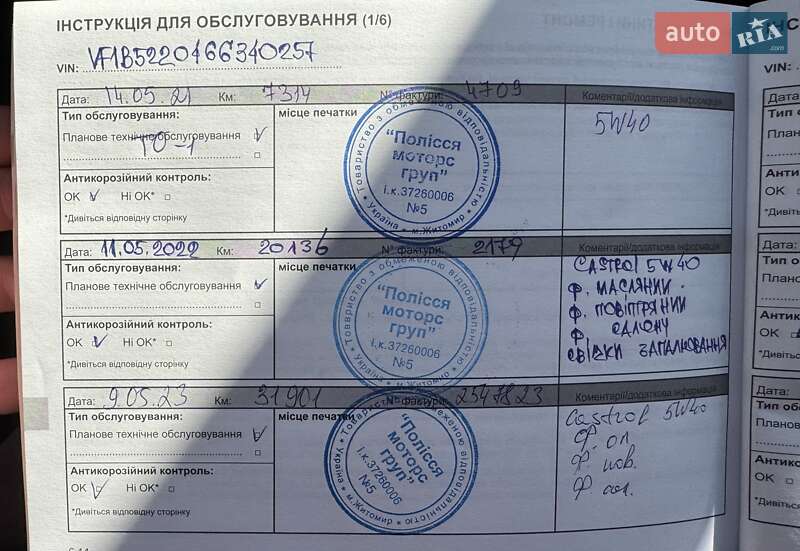 ІНСТРУКЦІЯ ДЛЯ ОБСЛУГОВУВАННЯ (1/6)
auto RIA .com
VIN: VF1B5220466340257
Дата: 14.05.21 Км: 7314 № фактури: 4709 Коментарії/додаткова інформація
Тип обслуговування:
Планове технічне обслуговування
ТО-1
Антикорозійний контроль:
ОК Ні ОК*
*Дивіться відповідну сторінку
місце печатки
Товариство з обмеженою відповідальністю
"Полісся
моторс
груп"
і.к.37260006
№5
* Україна * м.Житомир *
5W40
Дата: 11.05.2022 Км: 20136 № фактури: 2179 Коментарії/додаткова інформація
Тип обслуговування:
Планове технічне обслуговування
Антикорозійний контроль:
ОК Ні ОК*
*Дивіться відповідну сторінку
місце печатки
Товариство з обмеженою відповідальністю
"Полісся
моторс
груп"
і.к.37260006
№5
* Україна * м.Житомир *
CASTROL 5W40
Ф. МАСЛЯНИЙ
Ф. ПОВІТРЯНИЙ
Ф. САЛОНУ
СВІЧКИ ЗАПАЛЮВАННЯ
Дата: 9.05.23 Км: 31901 № фактури: 2547823 Коментарії/додаткова інформація
Тип обслуговування:
Планове технічне обслуговування
Антикорозійний контроль:
ОК Ні ОК*
*Дивіться відповідну сторінку
місце печатки
Товариство з обмеженою відповідальністю
"Полісся
моторс
груп"
і.к.37260006
№5
* Україна * м.Житомир *
Castrol 5W40
Ф. ол.
Ф. пов.
Ф. сал.
VIN:
Тип о
Планов
Антико
ОК
*Дивіть